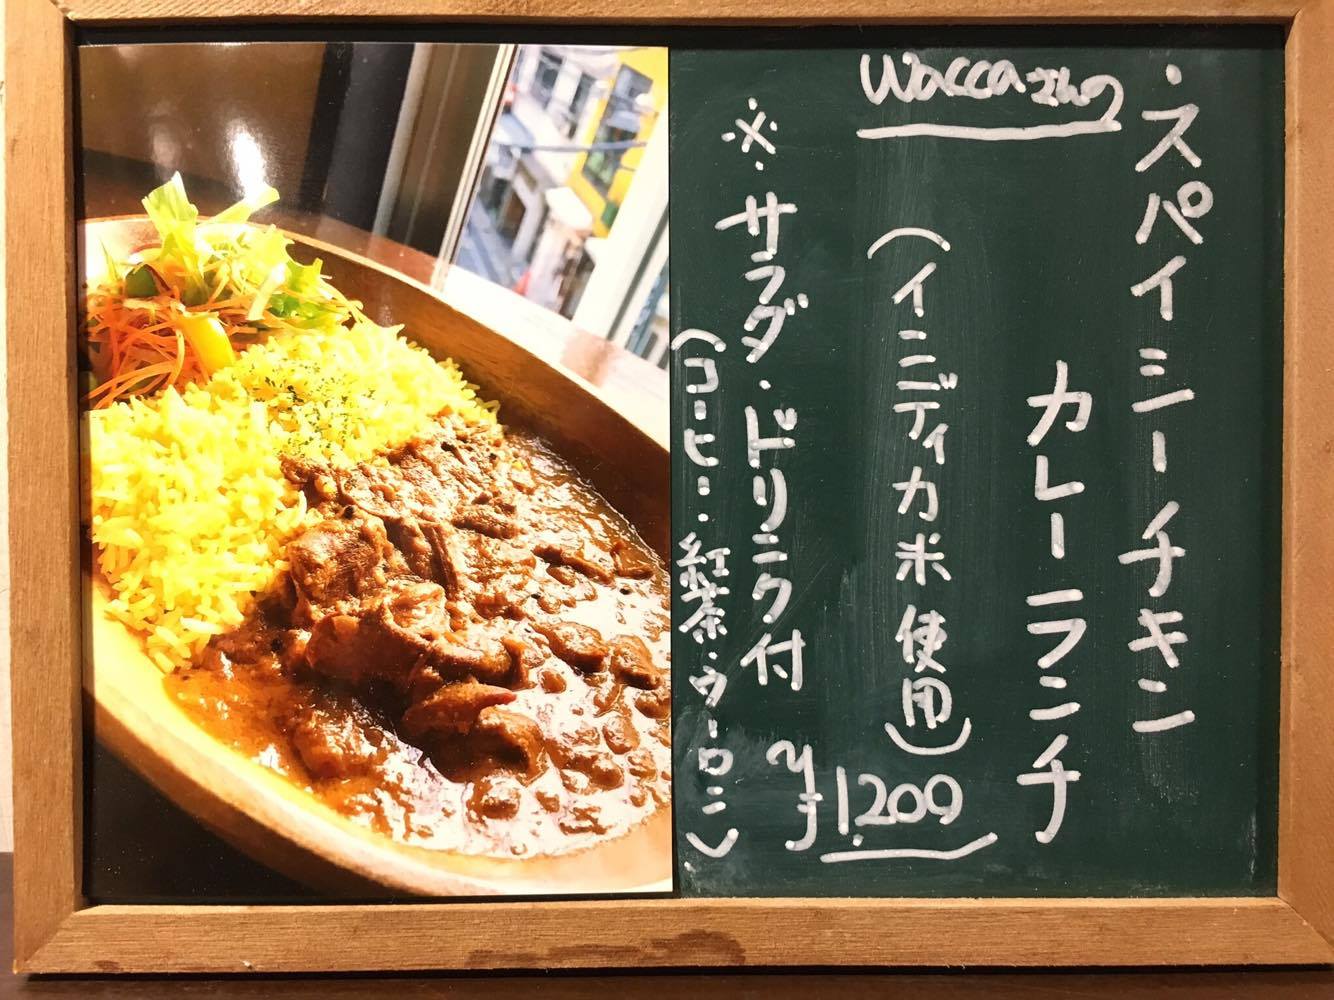 Waccaさんの
・スパイシーチキン
カレーランチ
(インディカ米使用)
1.209
※サラダ・ドリンク付
(コーヒー・紅茶・ウーロン)